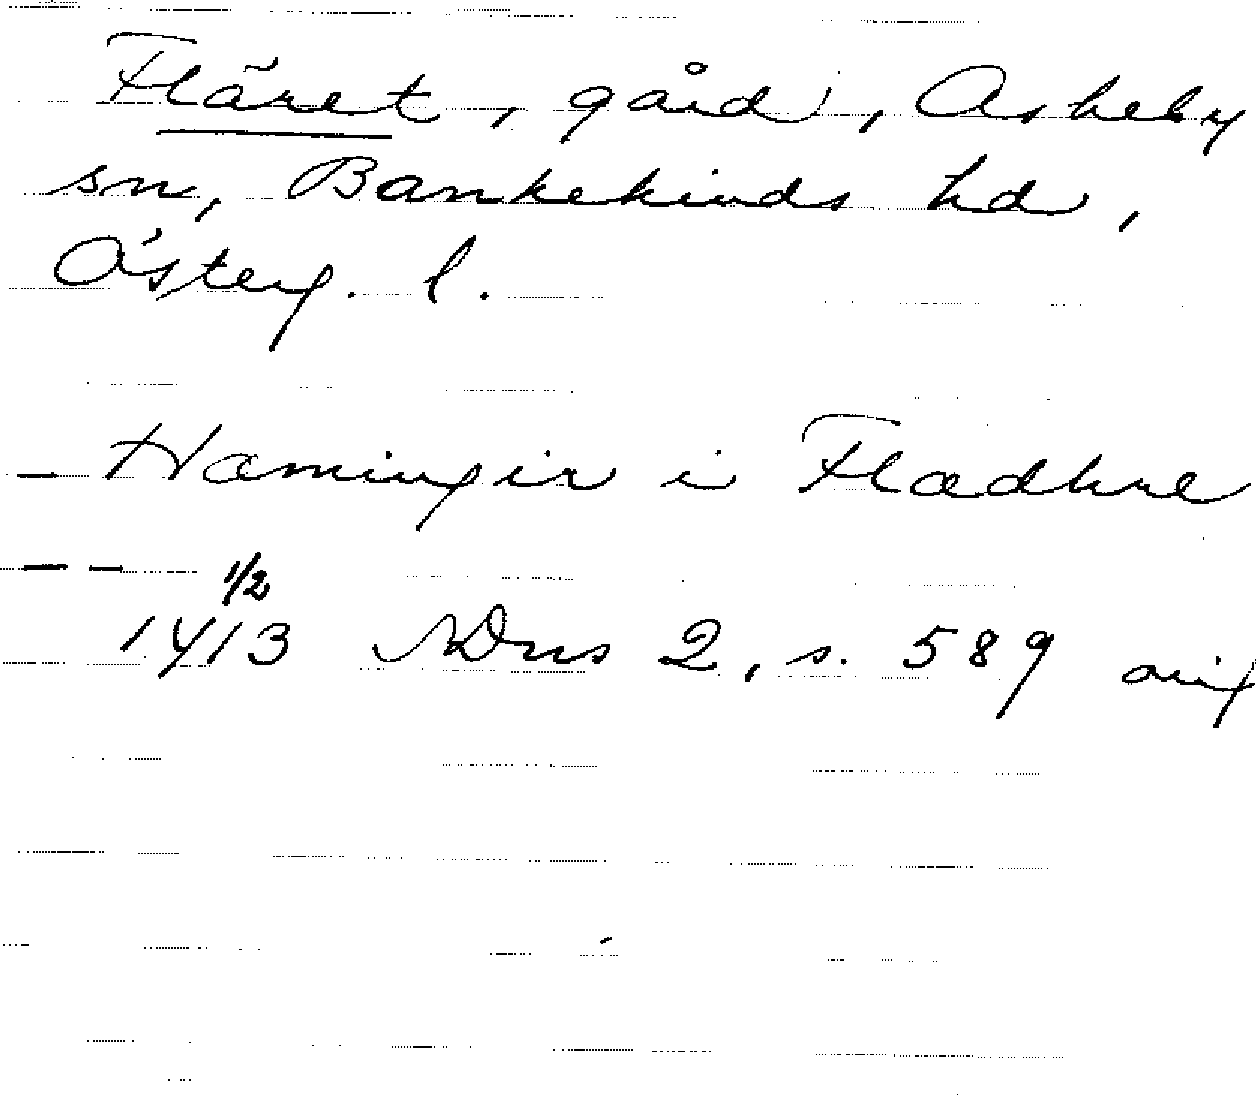 Fläret, gård, Askeby
sn, Bankekinds hd,
Österg. l.
— Hæmingir i Flædhre
— — 1/2
1413 SDns 2, s. 589 orig